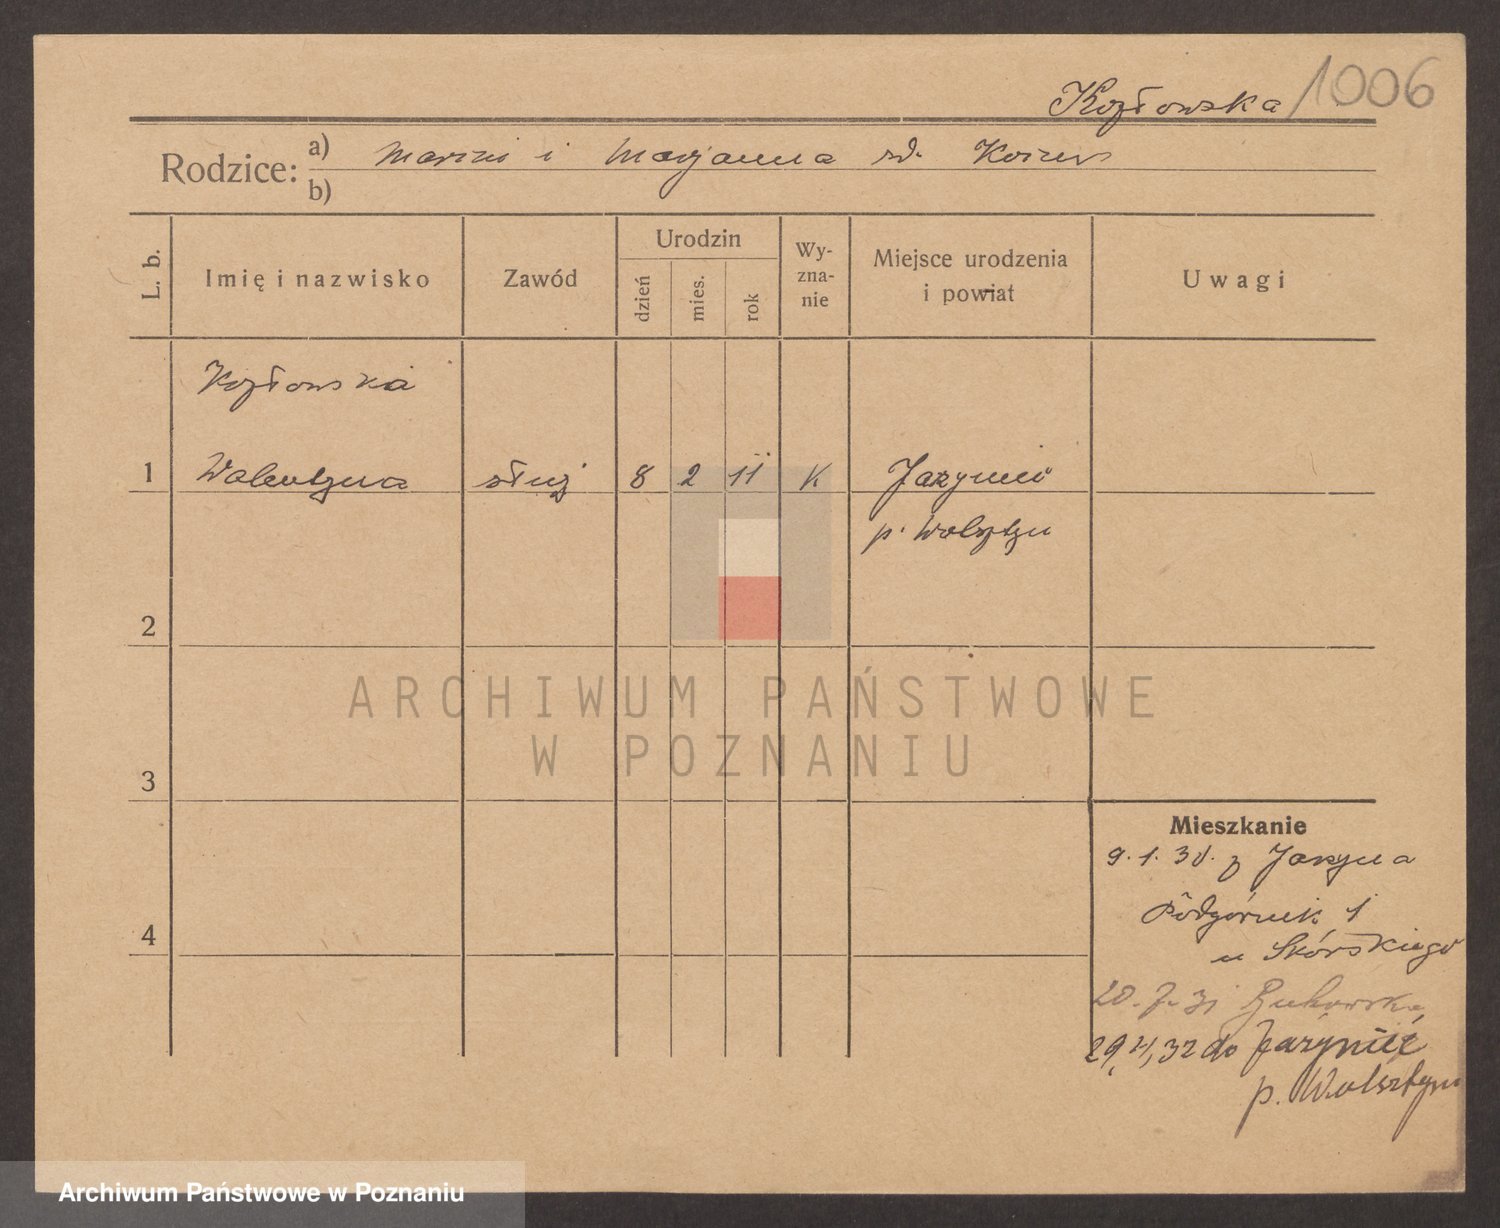 Kozłowska 1006
Rodzice: a) Marcin i Marjanna rd.
b)
L. b.
Imię i nazwisko
Zawód
Urodzin
dzień
mies.
rok
Wy-
zna-
nie
Miejsce urodzenia
i powiat
Uwagi
Kozłowska
1 Walentyna służ 8 2 11 K Jażyniec
p. Wolsztyn
2
3
4
Mieszkanie
9.1.30. z Jażyńca
Podgórnik 1
u Skórskiego
20.7.31 Bukowska
29,4,32 do Jażyniec
p. Wolsztyn
ARCHIWUM PAŃSTWOWE
W POZNANIU
Archiwum Państwowe w Poznaniu